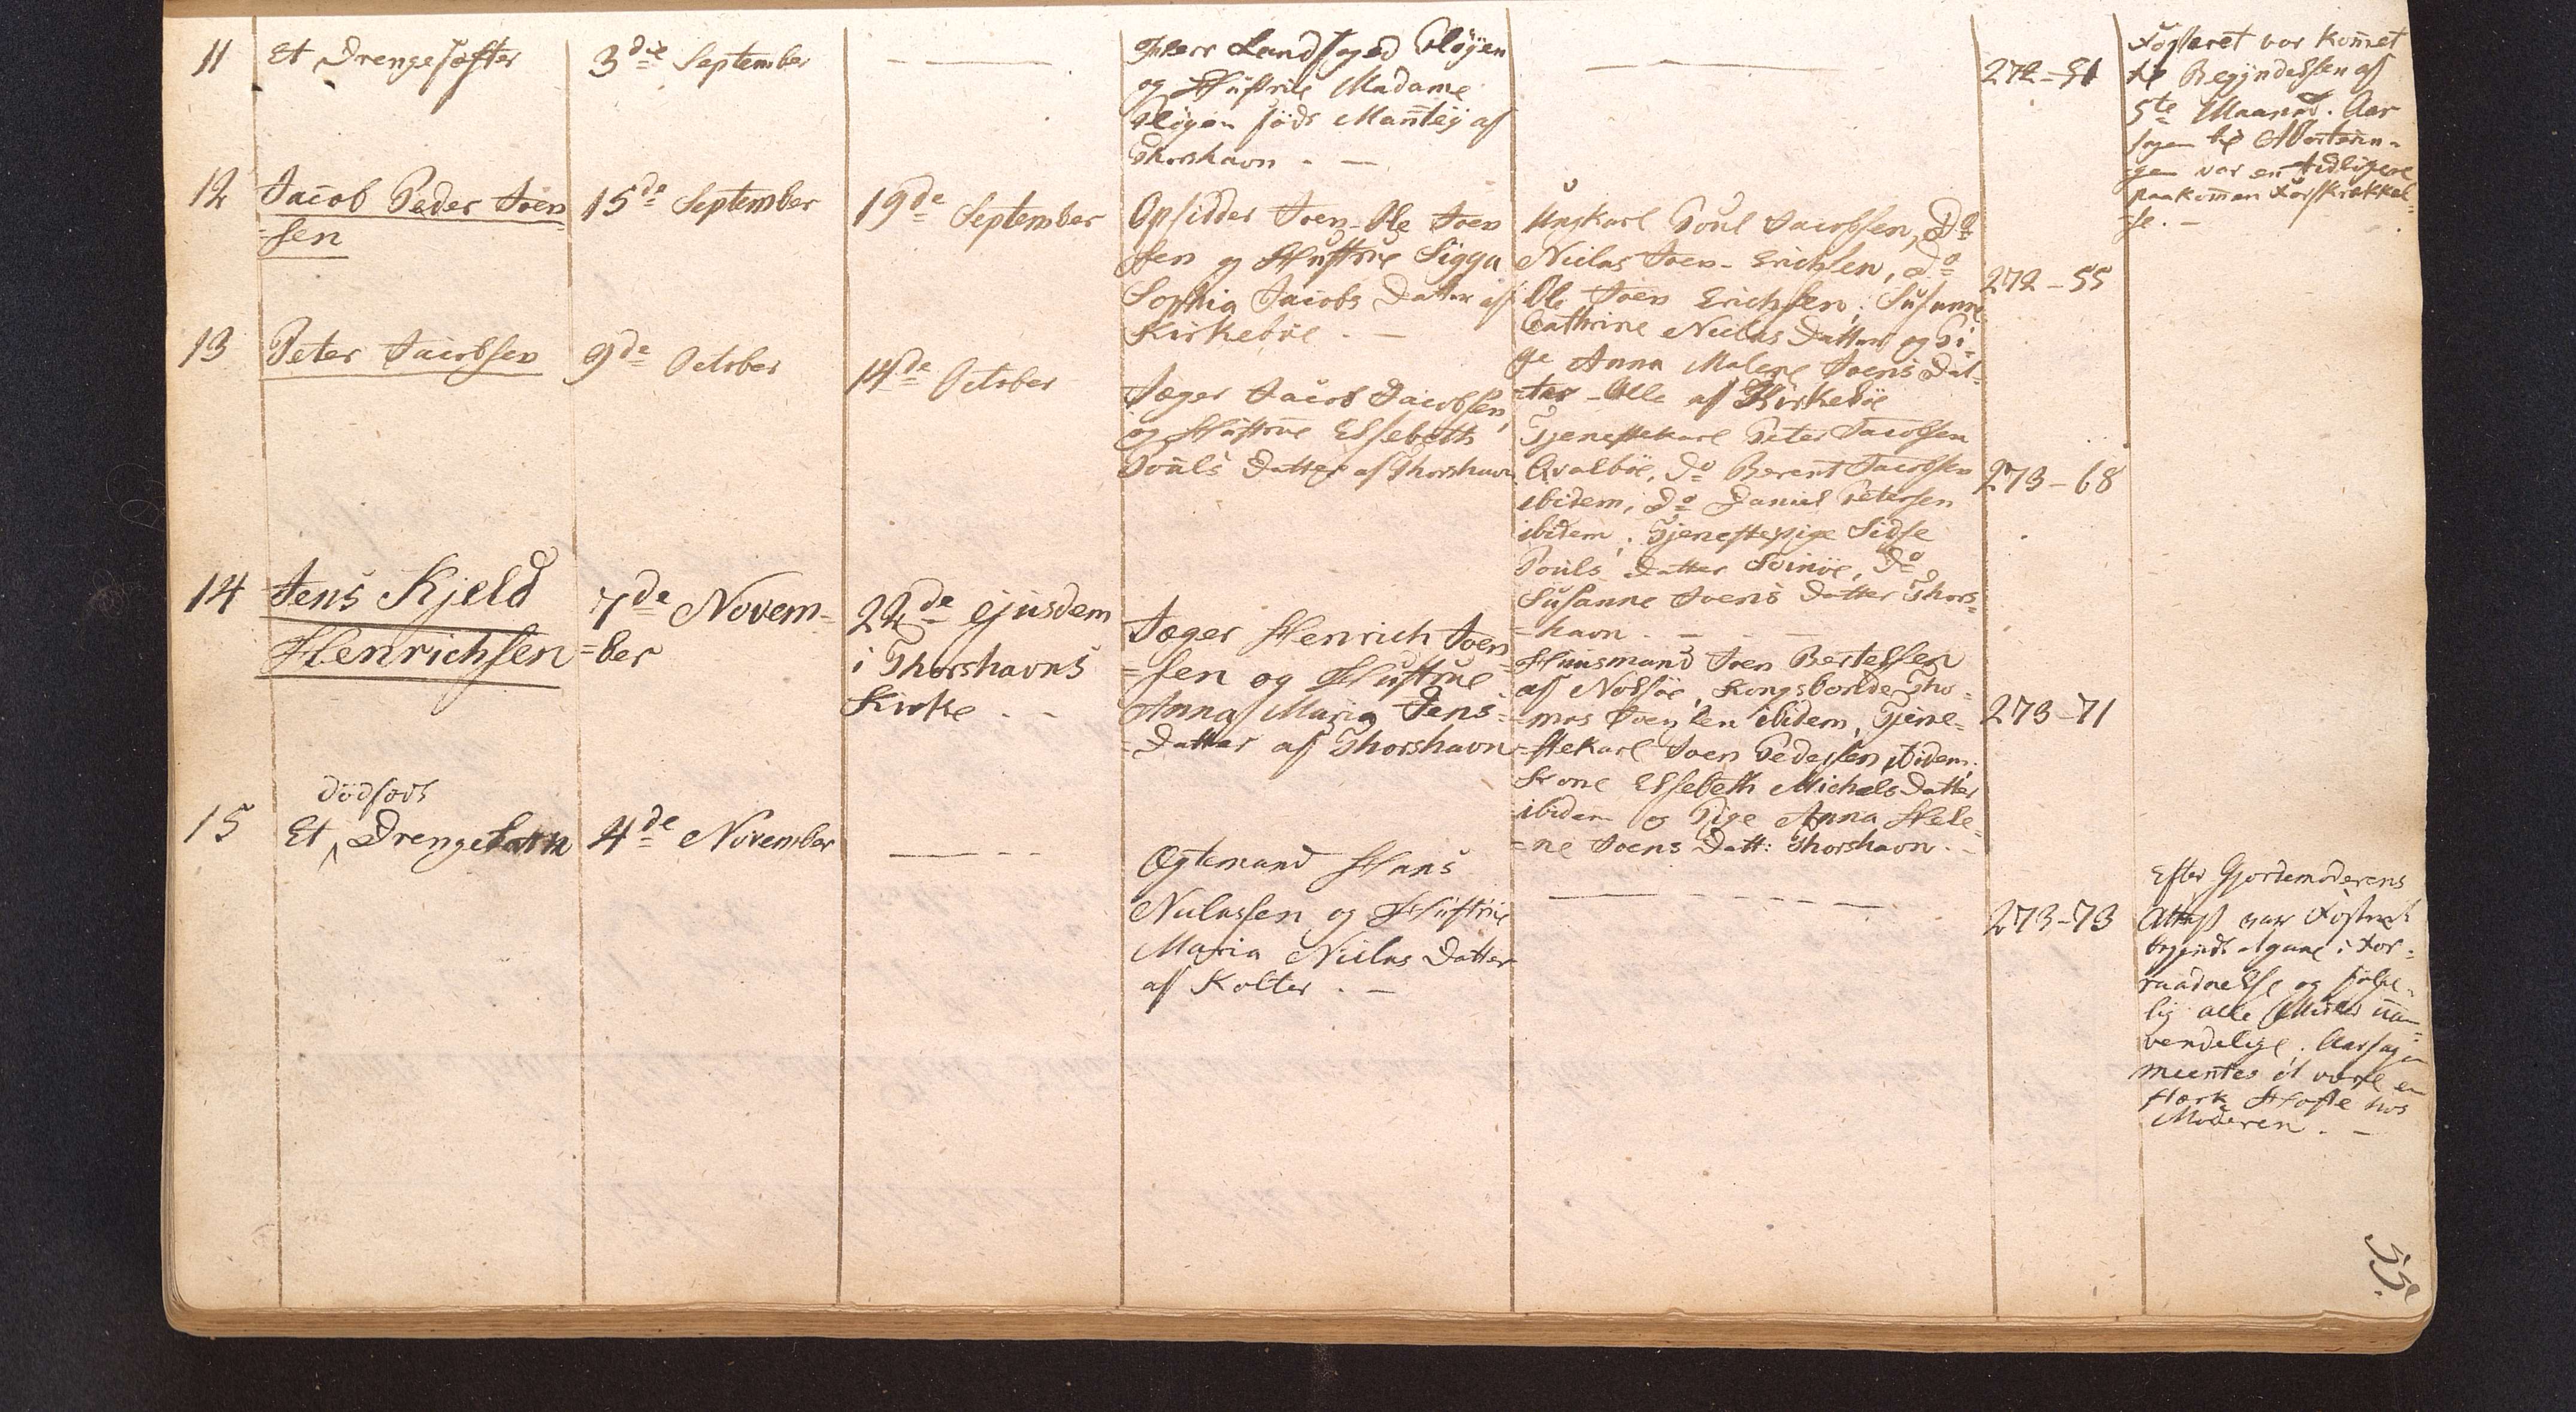 11
Et Drengefoster
3die September
Herr Landfoged Pløyen
og Hustrue Madame
Pløyen födt Manteÿ af
Thorshavn . —
272-51
Fosteret var kom̄et
til Begÿndelsen af
5te Maaned. Aar
sagen til Aborterin-
gen var en tidligere
paakom̄en Forskrækkel-
se. —
12
Jacob Peder Joen
=sen
15de September
19de September
Opsidder Joen-Ole Joen
sen og Hustrue Sigga
Sophia Jacobs Datter af
Kirkeböe . —
Ungkarl Poul Jacobsen, Do
Niclas Joen- Erichsen, do
Ole Joen Erichsen, Susanne
Cathrine Niclas Datter og Pi-
ge Anna Malene Joens Dat-
ter - Alle af Kirkeböe
272-55
13
Peter Jacobsen
9de October
14de October
Jæger Jacob Jacobsen
og Hustrue Elsebeth
Pouls Datter af Thorshavn
Tjenestekarl Peter Jacobsen
Qvalböe, do Berent Jacobsen
ibidem, do Daniel Petersen
ibidem, Tjenestepige Sidse
Pouls Datter Svinöe, do
Susanne Joens Datter Thors-
=havn . —
273-68
14
Jens Kjeld
Henrichsen
7de Novem-
=ber
22de ejusdem
i Thorshavns
Kirke . -
Jæger Henrich Joen
=sen og Hustrue
Anna Maria Jens-
=Datter af Thorshavn
Huusmand Joen Bertelsen
af Nolsöe, Kongsbonde Tho-
=mas Joensen ibidem, Tjene-
=stekarl Joen Pedersen ibidem.
Kone Elsebeth Michels Datter
ibidem og Pige Anna Hele-
=ne Joens Datt: Thorshavn. -
273-71
15
dödfödt
Et Drengebarn
4de November
Ægtemand Hans
Niclassen og Hustrue
Maria Niclas Datter
af Kolter . —
273-73
Efter Gjordemoderens
Attest var Fosteret
begÿndt at gaae i For-
raadnelse og fölge-
lig alle Midler uan-
vendelige. Aarsagen
meentes at være en
stærk Hoste hos
Moderen . —